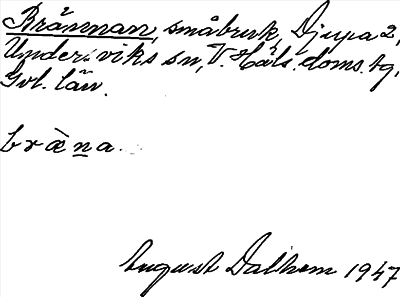 Brännan, småbruk, Djupa 2,
Underviks sn, V. Häls. doms. tg,
Gvl. län.
bræ̀na.
August Dalhem 1947